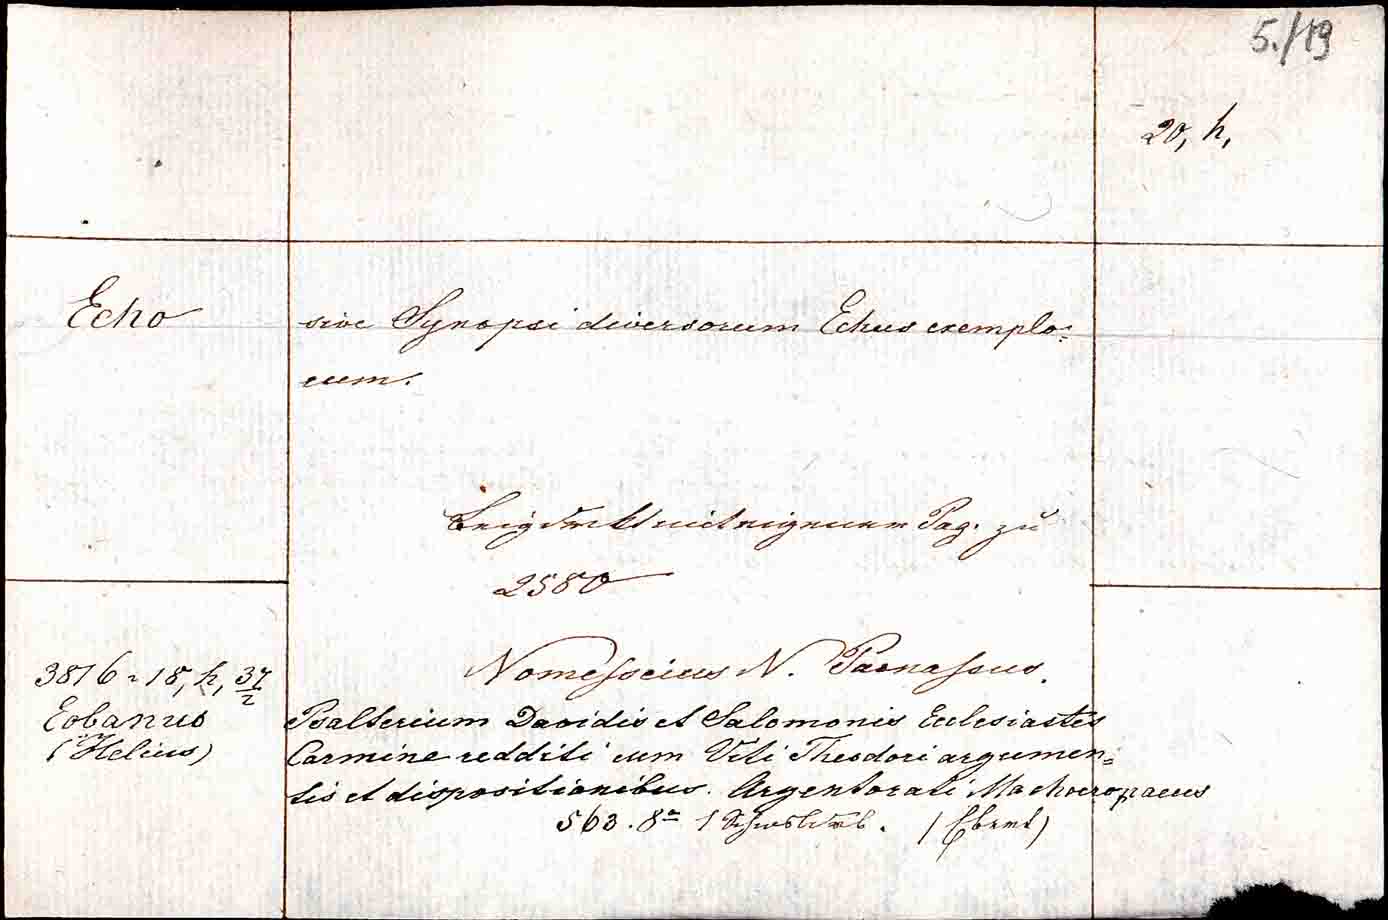 5./19
20, h,
Echo
sive Synopsi diversorum Echus exemplo=
rum.
Pag. zu
2580
Nomesseius N. Parnassus.
3816 18, h, 37/2
Eobanus
(Helius)
Psalterium Davidis et Salomonis Ecclesiastes
Carmine redditi cum Viti Theodori argumen=
tis et dispositionibus. Argentorati Machoeropaeus
563. 8°